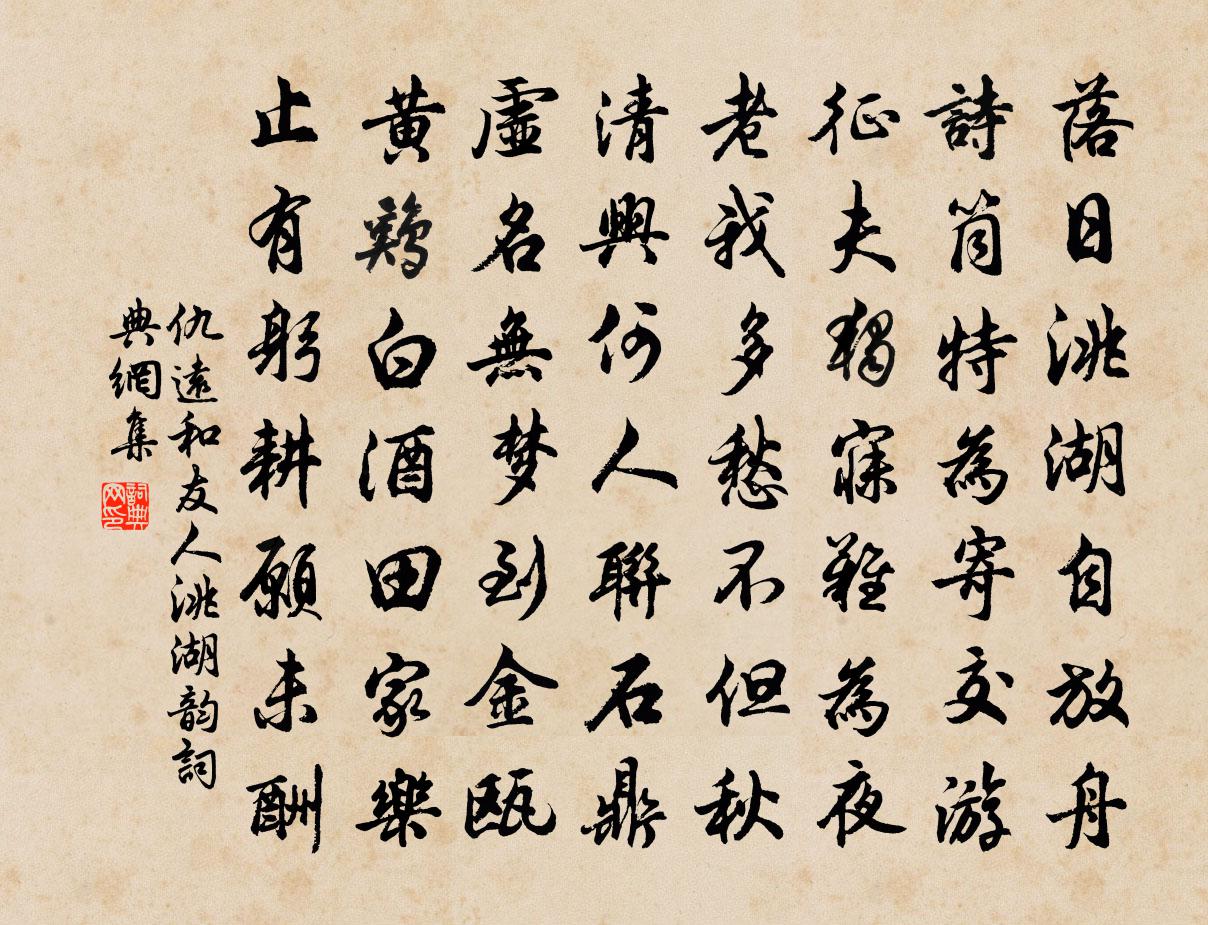 落日洮湖自放舟
詩筒特為寄交游
征夫獨寐難為夜
老我多愁不但秋
清興何人聯石鼎
虛名無梦到金甌
黃鷄白酒田家樂
止有躬耕願未酬
仇遠和友人洮湖韵詞
典網集
詞典网印